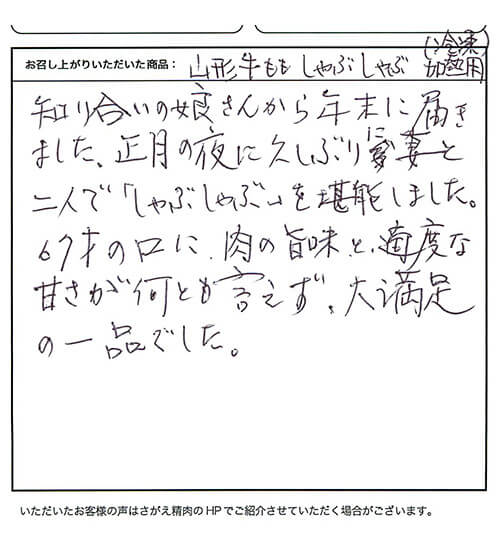 お召し上がりいただいた商品： 山形牛もも しゃぶしゃぶ (冷凍)加熱用
知り合いの娘さんから年末に届き
ました、正月の夜に久しぶりに愛妻と
二人で「しゃぶしゃぶ」を堪能しました。
67才の口に、肉の旨味と、適度な
甘さが何とも言えず、大満足
の一品でした。
いただいたお客様の声はさがえ精肉のHPでご紹介させていただく場合がございます。